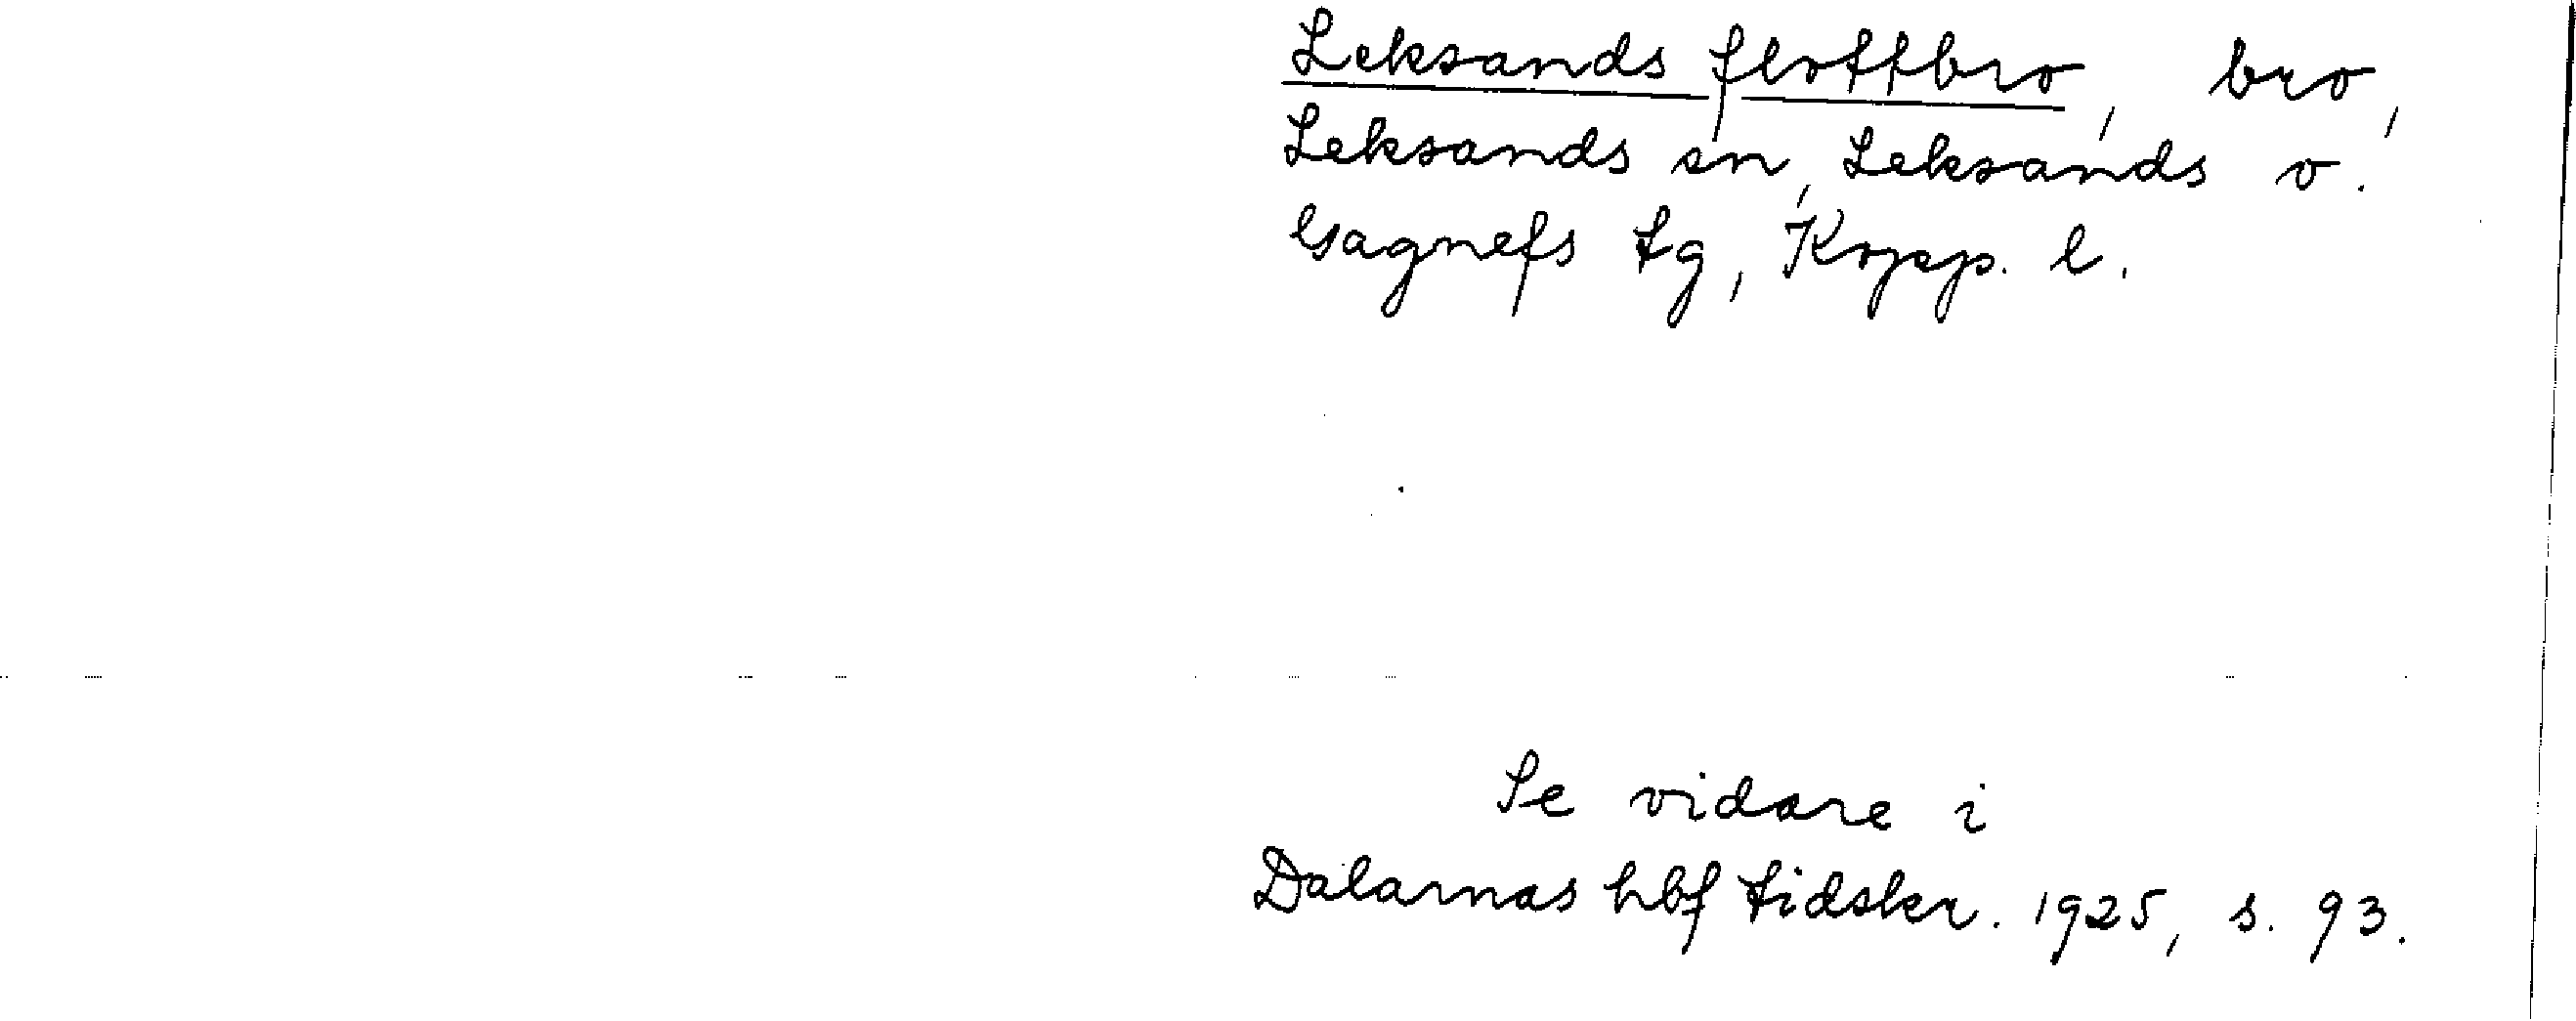 Leksands flottbro, bro,
Leksands sn, Leksands o.
Gagnefs tg, Kopp. l.
Se vidare i
Dalarnas hbf tidskr. 1925, s. 93.